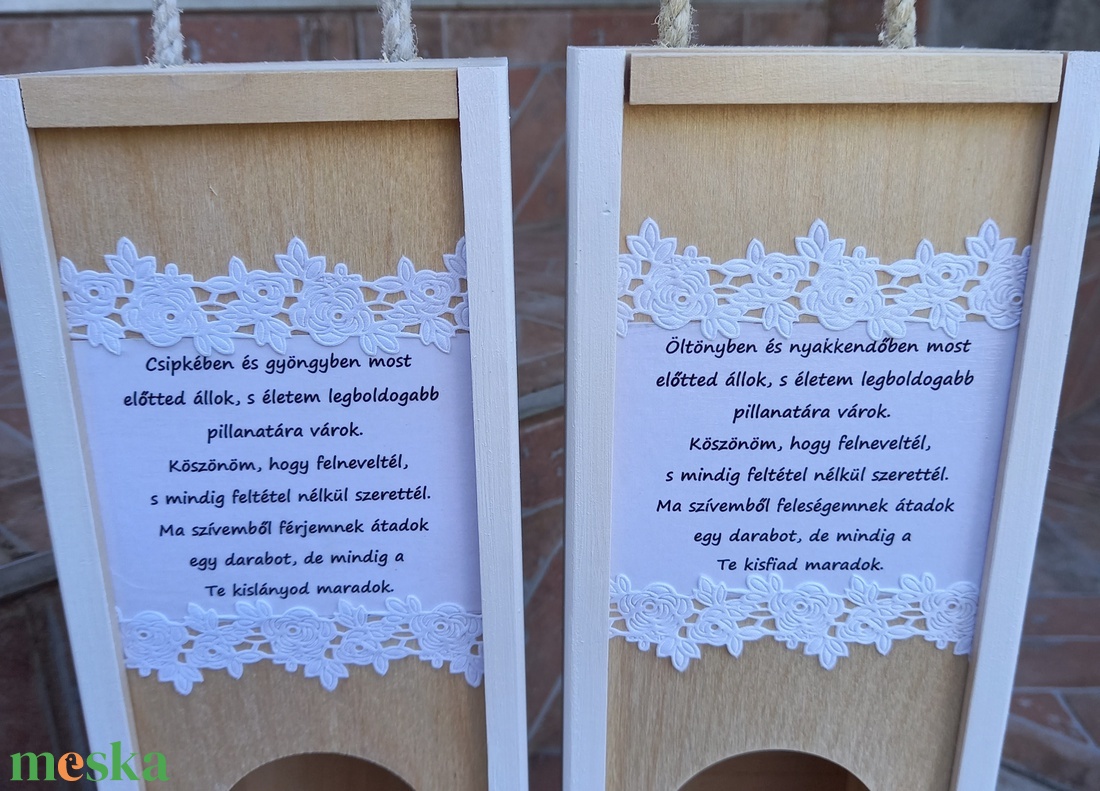 Csipkében és gyöngyben most
előtted állok, s életem legboldogabb
pillanatára várok.
Köszönöm, hogy felneveltél,
s mindig feltétel nélkül szerettél.
Ma szívemből férjemnek átadok
egy darabot, de mindig a
Te kislányod maradok.
Öltönyben és nyakkendőben most
előtted állok, s életem legboldogabb
pillanatára várok.
Köszönöm, hogy felneveltél,
s mindig feltétel nélkül szerettél.
Ma szívemből feleségemnek átadok
egy darabot, de mindig a
Te kisfiad maradok.
meska